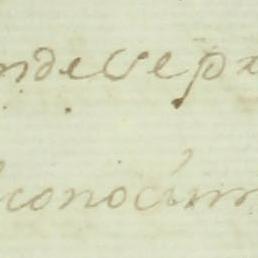 ndecepx
conocim